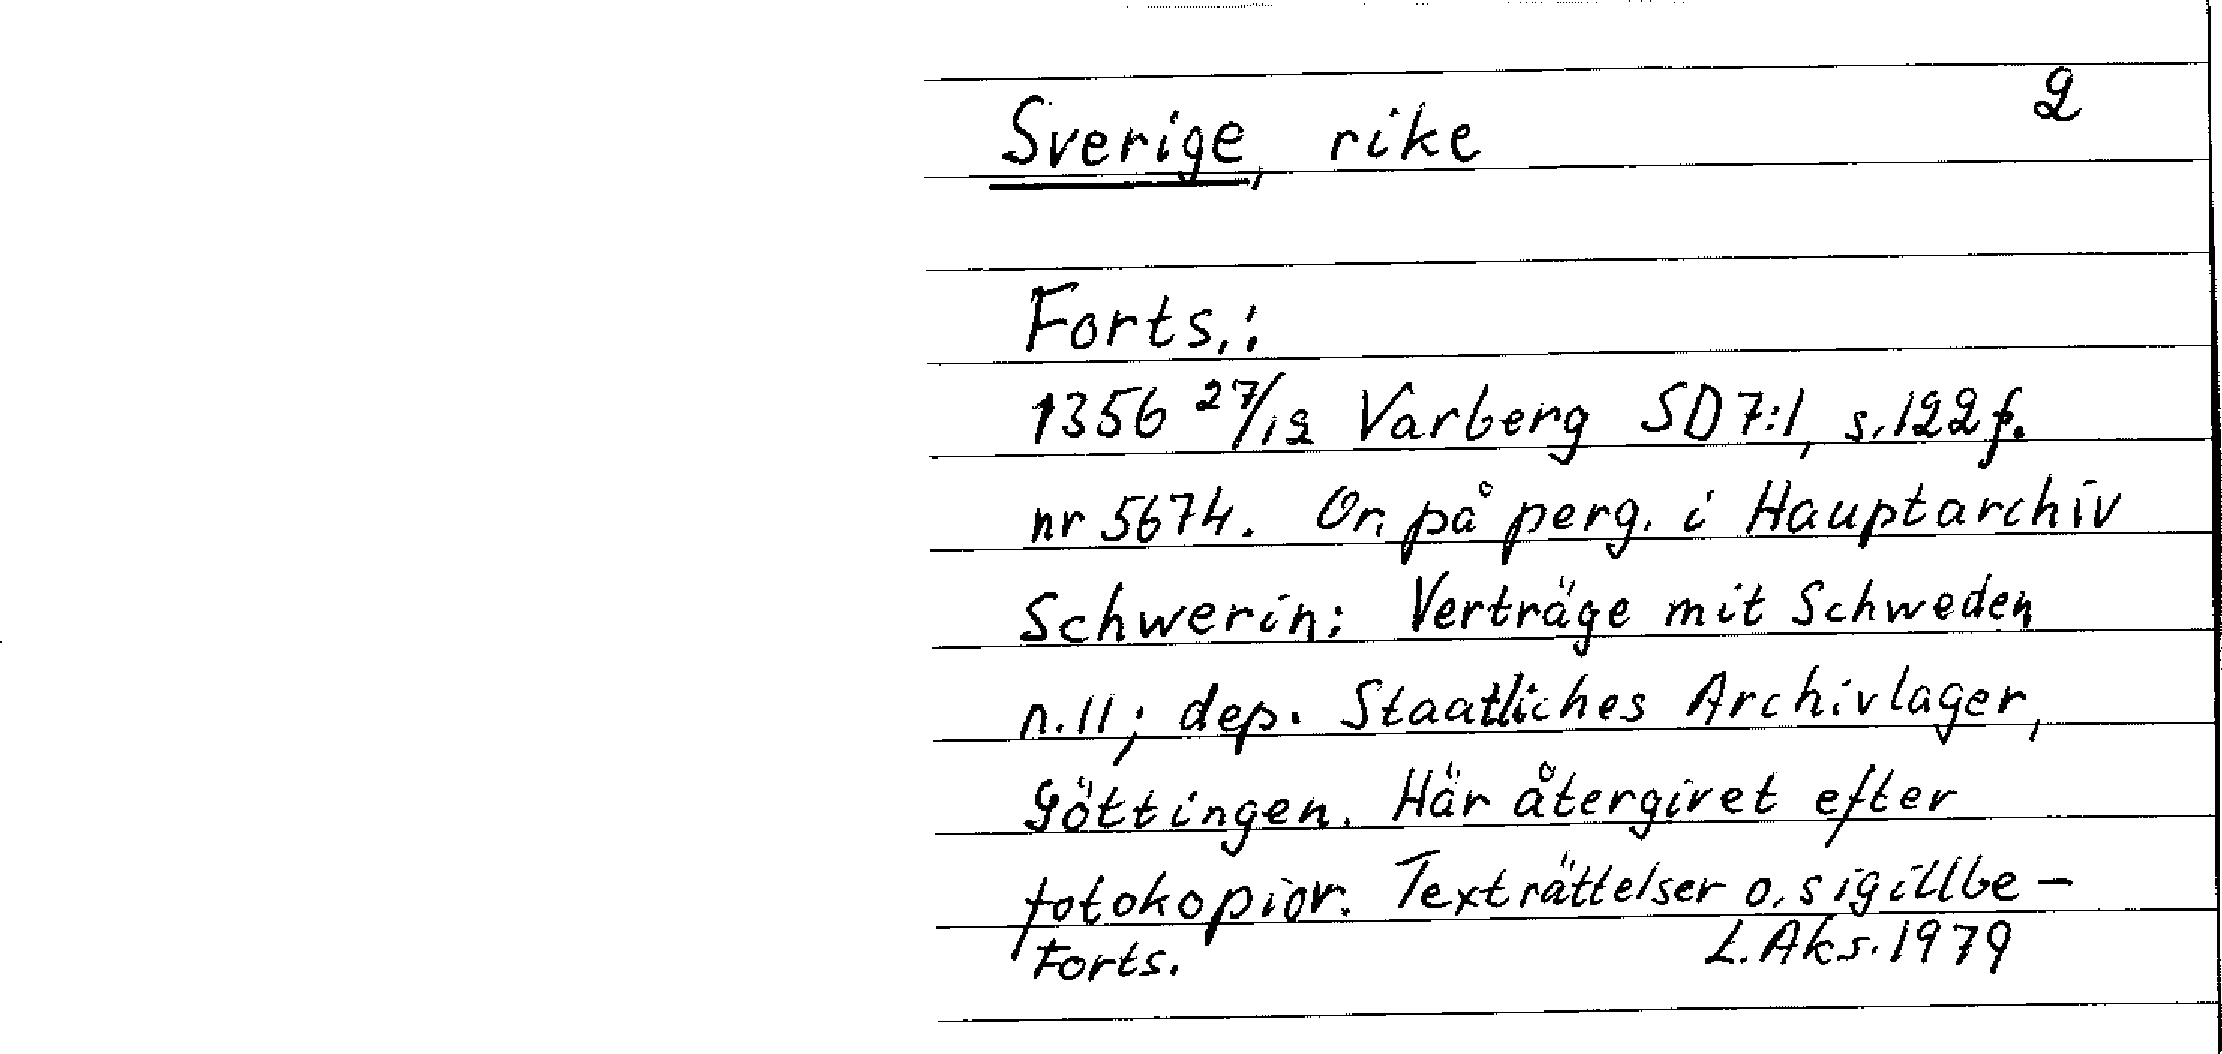 2
Sverige, rike
Forts.:
1356 27/12 Varberg SD 7:1, s. 122 f.
nr 5674. Or. på perg. i Hauptarchiv
Schwerin: Verträge mit Schweden
n. 11; dep. Staatliches Archivlager,
Göttingen. Här återgivet efter
fotokopior. Texträttelser o. sigillbe-
Forts. L. Aks. 1979